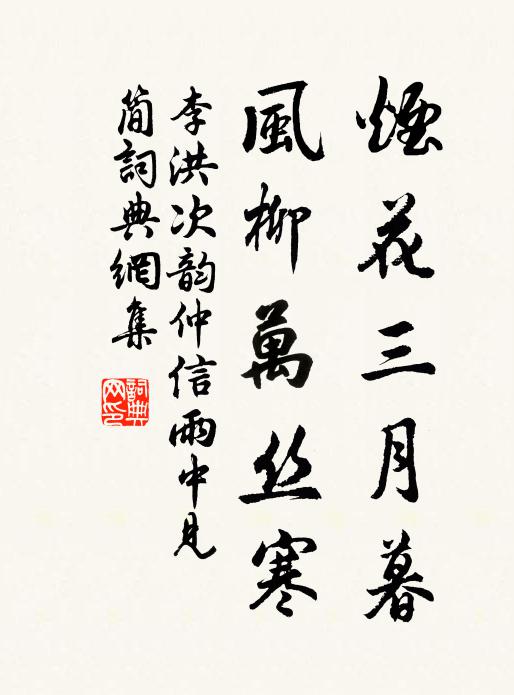 煙花三月暮
風柳萬丝寒
李洪次韵仲信雨中見
簡詞典網集
詞典
网印